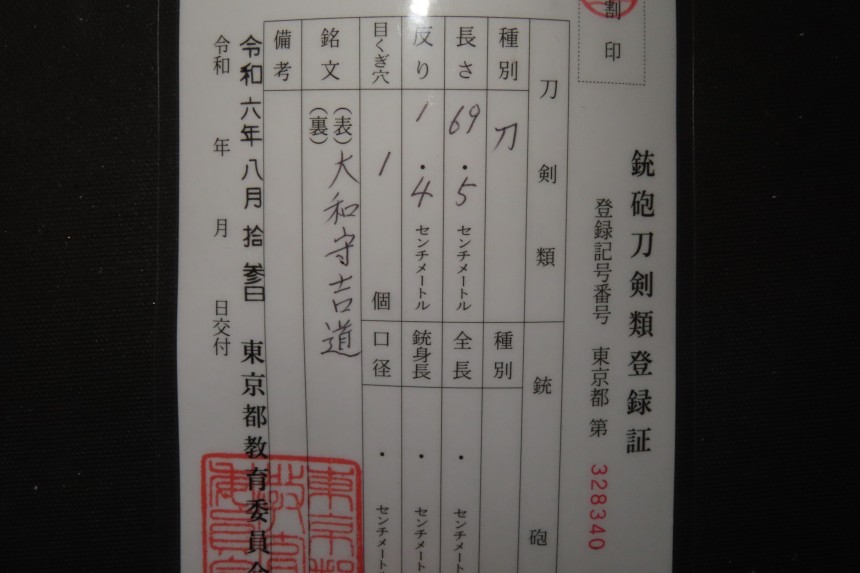 割印
銃砲刀剣類登録証
登録記号番号 東京都 第 328340
刀剣類
銃砲
種別 刀
種別
長さ 69.5 センチメートル
全長 ・ センチメート
反り 1.4 センチメートル
銃身長 ・ センチメート
目くぎ穴 1 個
口径 ・ センチメートル
銘文 (表) 大和守吉道
(裏)
備考
令和六年八月拾参日 東京都教育委員会
令和 年 月 日交付